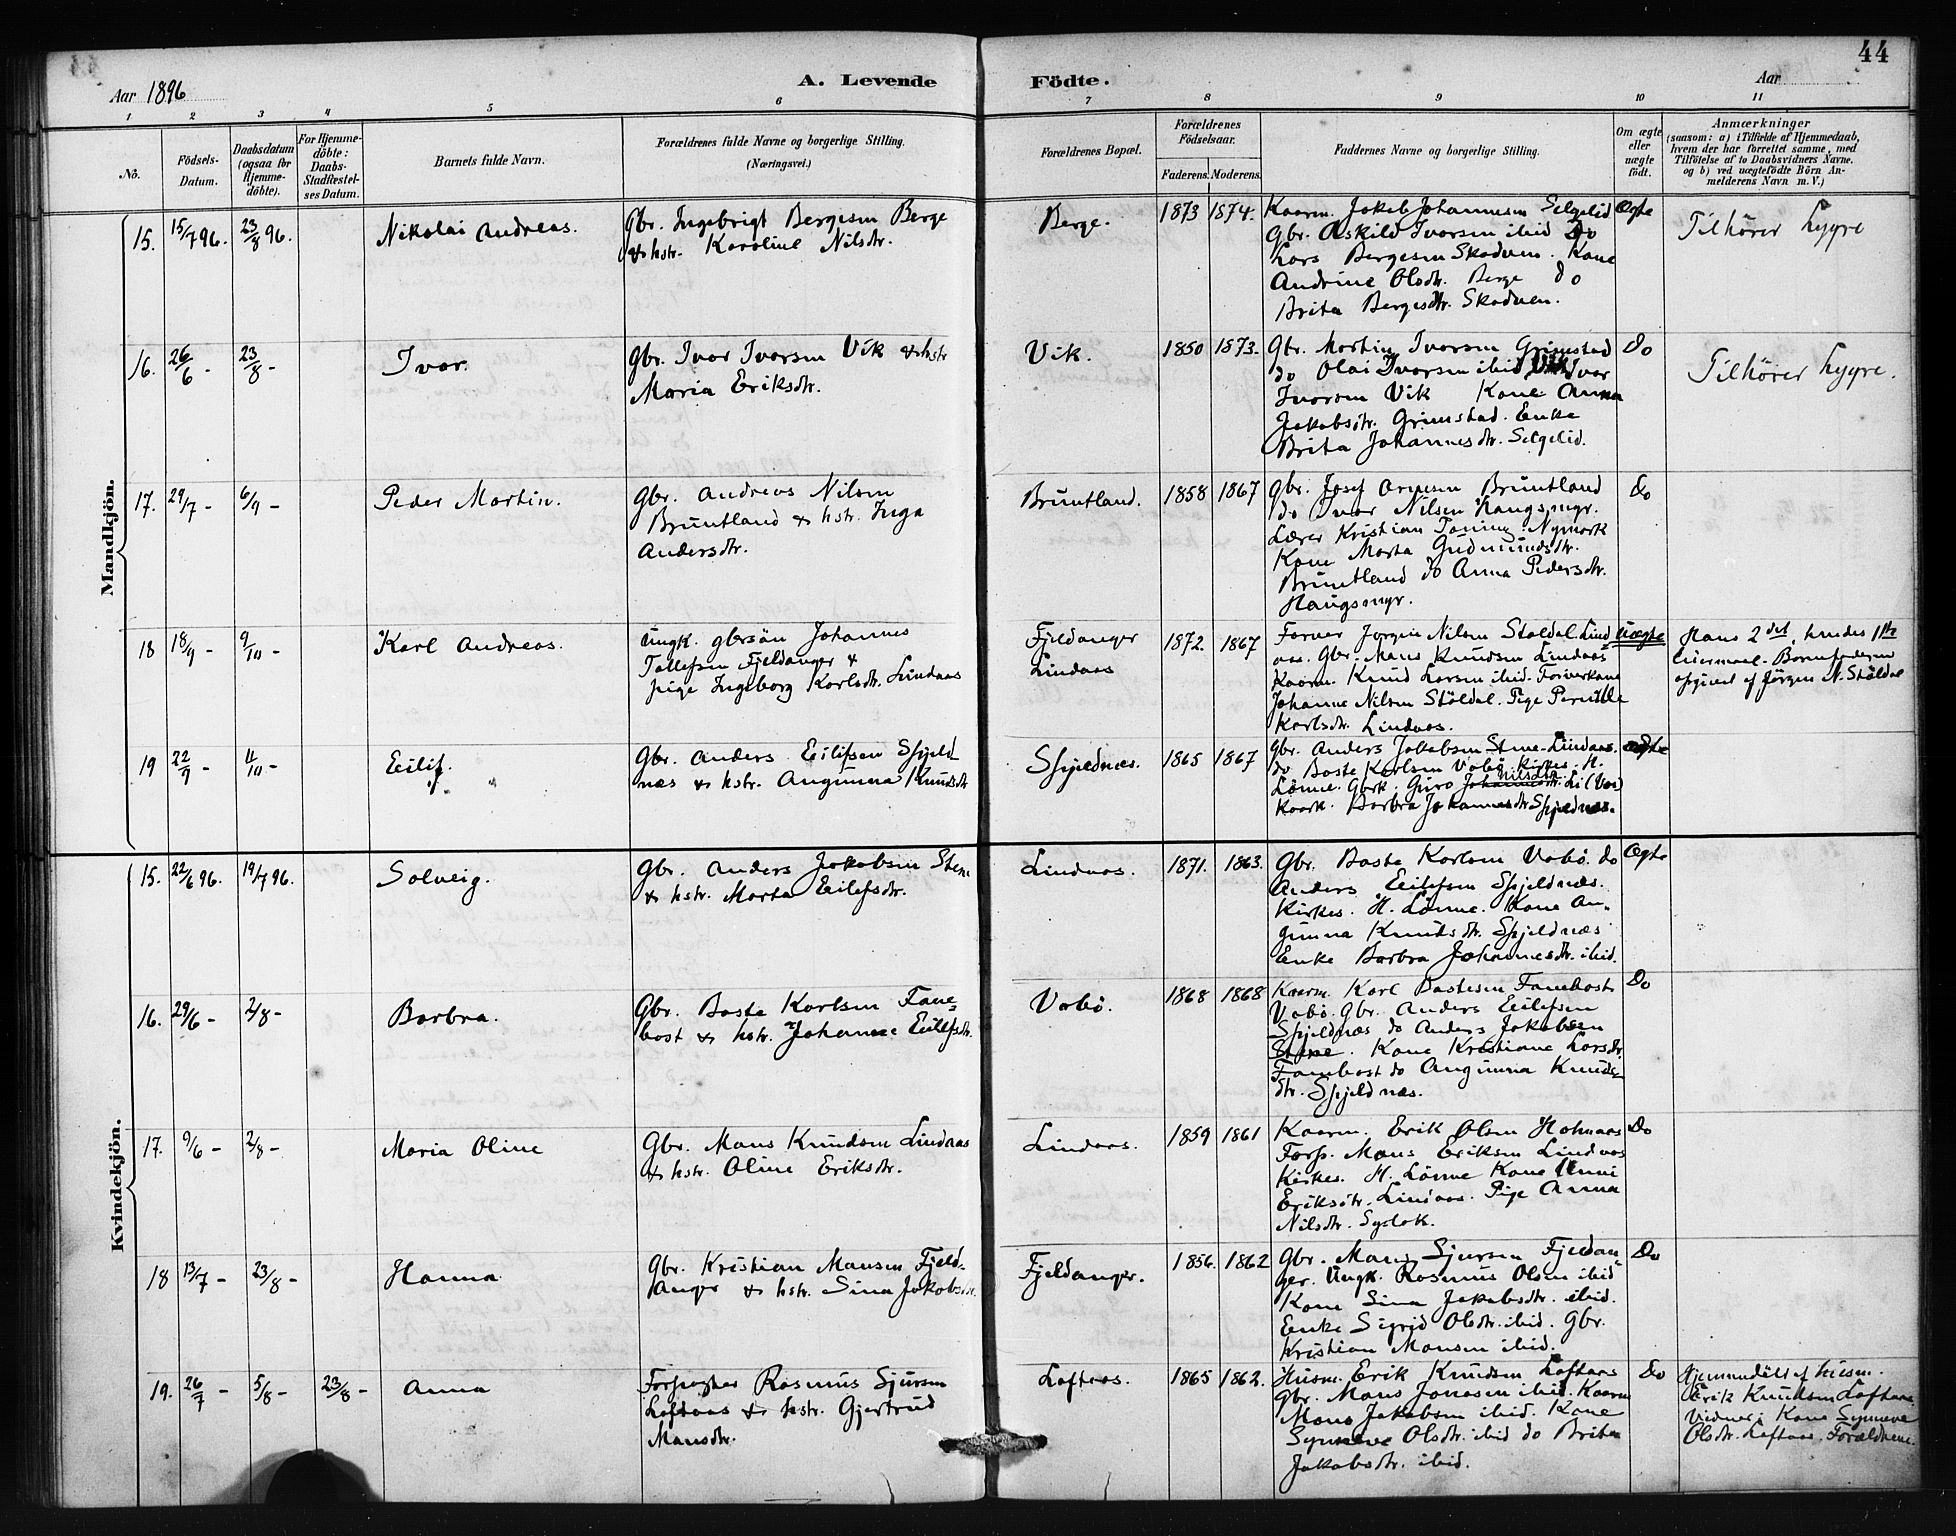 44
Aar 1896
A. Levende Födte.
Aar
1 2 3 4 5 6 7 8 9 10 11
No.
Födsels-Datum.
Daabsdatum (ogsaa for Hjemme-döbte).
For Hjemme-döbte: Daabs-Stadfæstel-ses Datum.
Barnets fulde Navn.
Forældrenes fulde Navne og borgerlige Stilling. (Næringsvei.)
Forældrenes Bopæl.
Forældrenes Födselsaar.
Faderens. Moderens.
Faddernes Navne og borgerlige Stilling.
Om ægte eller uægte födt.
Anmærkninger
(saasom: a) i Tilfælde af Hjemmedaab,
hvem der har forrettet samme, med
Tilföielse af to Daabsvidners Navne.
og b) ved uægtefödte Börn An-
melderens Navn m. V.)
Mandkjön.
15. 15/7 96. 23/8 96. Nikolai Andreas.
Gbr. Ingebrigt Bergesen Berge
& hstr. Karoline Nilsdtr.
Berge. 1873 1874.
Kaarm. Jakob Johannesen Selgelid
Gbr. Askild Ivarsen ibid Do
Lars Bergesen Skodven. Kone
Andrine Olsdtr. Berge do
Brita Bergesdtr. Skodven.
Ægte
Tilhører Lygre
16. 26/6 - 23/8 - Ivar.
Gbr. Ivar Ivarsen Vik & hstr
Maria Eriksdtr.
Vik. 1850 1873.
Gbr. Martin Ivarsen Grimstad
do Olai Ivarsen ibid Ivar
Ivarsen Vik Kone Anna
Jakobsdtr. Grimstad. Enke
Brita Johannesdtr. Selgelid.
Do
Tilhører Lygre.
17. 29/7 - 6/9 - Peder Martin.
Gbr. Andreas Nilsen
Bruntland & hstr. Inga
Andersdtr.
Bruntland. 1858 1867
Gbr. Josef Arnesen Bruntland
do Ivar Nilsen Haugsmyr.
Lærer Kristian Toning Nymark
Kone Marta Gudmundsdtr.
Bruntland do Anna Pedersdtr.
Haugsmyr.
Do
18 18/9 - 9/10 - Karl Andreas.
Ungk. gbrsön Johannes
Tollefsen Fjeldanger &
pige Ingeborg Karlsdtr. Lindaas
Fjeldanger
Lindaas
1872. 1867
Farver Jørgen Nilsen Støldal Lind
aas. Gbr. Mans Knudsen Lindaas
Kaarm. Knud Larsen ibid. Farverkone
Johanne Nilsen Støldal. Pige Pernille
Karlsdtr. Lindaas.
Uægte
Hans 2det, hendes 1ste
leiermaal. Barnefaderen
opgivet af Jørgen N. Støldal
19 22/9 - 4/10 - Eilif.
Gbr. Anders Eilifsen Spjeld
næs & hstr. Angunna Knudsdtr
Spjeldnæs. 1865 1867
Gbr. Anders Jakobsen Stene-Lindaas.
do Baste Karlsen Vabø. Kirkes. H.
Lønne. Gbrk. Guro Nilsdtr. Li (Vos)
Kaark. Barbra Johannesdtr Spjeldnæs.
ægte
Kvindekjön.
15. 22/6 96. 19/7 96. Solveig.
Gbr. Anders Jakobsen Stene
& hstr. Marta Eilifsdtr.
Lindaas. 1871. 1863.
Gbr. Baste Karlsen Vabø. do
Anders Eilifsen Spjeldnæs.
Kirkes. H. Lønne. Kone An-
gunna Knudsdtr. Spjeldnæs
Enke Barbra Johannesdtr. ibid.
Ægte
16. 29/6 - 2/8 - Barbra.
Gbr. Baste Karlsen Fane-
bost & hstr. Johanne Eilifsdtr.
Vabø. 1868 1868
Kaarm. Karl Bastesen Fanebost
Vabø. Gbr. Anders Eilifsen
Spjeldnæs do Anders Jakobsen
Stene. Kone Kristianne Larsdtr.
Fanebost do Angunna Knuds-
dtr. Spjeldnæs.
Do
17. 9/6 - 2/8 - Maria Oline
Gbr. Mans Knudsen Lindaas
& hstr. Oline Eriksdtr.
Lindaas. 1859 1861
Kaarm. Erik Olsen Hohnaas
Forp. Mans Eriksen Lindaas
Kirkes. H. Lønne Kone Unni
Eriksdtr. Lindaas. Pige Anna
Nilsdtr. Syslak.
Do
18 13/7 - 23/8 - Hanna
Gbr. Kristian Mansen Fjeld-
anger & hstr. Sina Jakobsdtr.
Fjeldanger. 1856. 1862
Gbr. Mans Sjursen Fjeldan
ger. Ungk. Rasmus Olsen ibid
Kone Sina Jakobsdtr. ibid.
Enke Sigrid Olsdtr. ibid. Gbr.
Kristian Mansen ibid.
Do
19. 26/7 - 5/8 - 23/8 - Anna
Forpagter Rasmus Sjursen
Loftaas & hstr. Gjertrud
Mansdtr.
Loftaas. 1865 1862.
Husm. Erik Knudsen Loftaas
Gbr. Mans Jonasen ibid. Kaarm
Mans Jakobsen ibid. Kone
Synneve Olsdtr. ibid do Brita
Jakobsdtr. ibid.
Do
Hjemmedøbt af husm.
Erik Knudsen Loftaas.
Vidner: Kone Synneve
Olsdtr. Loftaas. Forældrene.